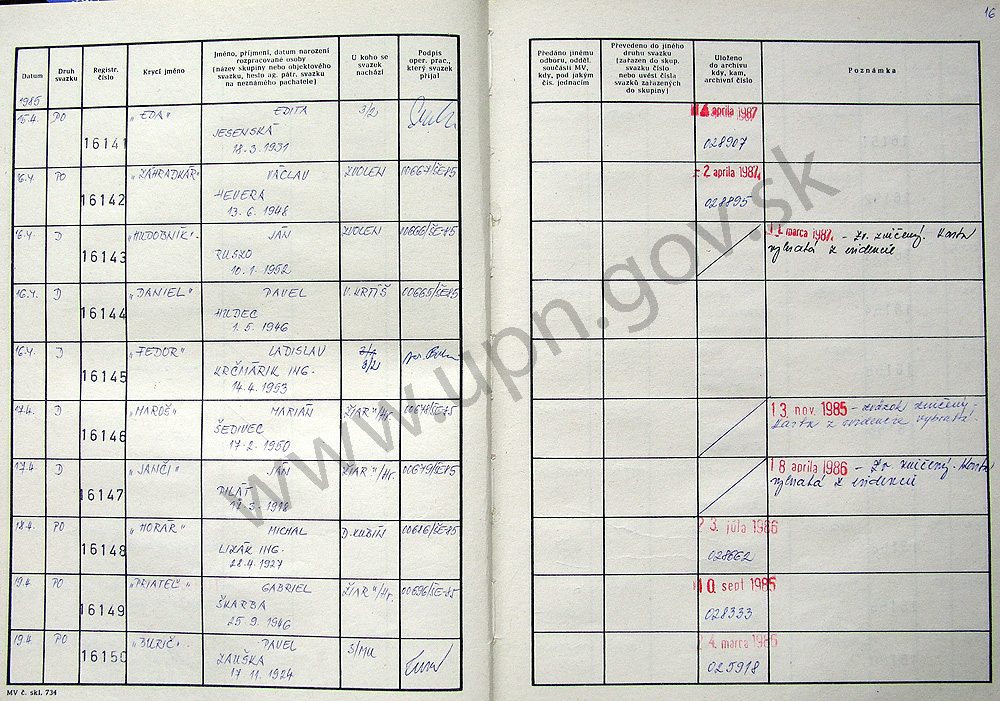 16
Datum
Druh svazku
Registr. číslo
Krycí jméno
Jméno, příjmení, datum narození
rozpracované osoby
(název skupiny nebo objektového
svazku, heslo ag. pátr. svazku
na neznámého pachatele)
U koho se
svazek
nachází
Podpis
oper. prac.,
který svazek
přijal
Předáno jinému
odboru, odděl.
součásti MV,
kdy, pod jakým
čís. jednacím
Převedeno do jiného
druhu svazku
(zařazen do skup.
svazku číslo
nebo uvést čísla
svazků zařazených
do skupiny)
Uloženo
do archivu
kdy, kam,
archivní číslo
Poznámka
1985
15.4. PO 16141 "EDA" EDITA 3/2
JESENSKÁ
18.3.1931
aprila 1987
028907
16.4. PO 16142 "ZÁHRADKÁR" VÁCLAV ZVOLEN 00667/ŠE-85
HEVERA
13.6.1948
2 aprila 1987
028895
16.4. D 16143 "HUDOBNÍK" JÁN ZVOLEN 00666/ŠE-85
RUSKO
10.1.1952
marca 1987 - Zv. zničený. Karta
vybratá z evidencie
16.4. D 16144 "DANIEL" PAVEL V. KRTÍŠ 00665/ŠE-85
HUDEC
1.5.1946
16.4. D 16145 "FEDOR" LADISLAV
KRČMÁRIK ING. 3/2
14.4.1953
17.4. D 16146 "MAROŠ" MARIÁN ŽIAR n/Hr.
ŠEDIVEC
17.2.1950
13 nov. 1985 - zväzok zničený.
Karta z evidencie vybratá.
17.4. D 16147 "JANČI" JÁN ŽIAR n/Hr. 00679/ŠE-85
PILÁT
18 aprila 1986 - Zv. zničený. Karta
vybratá z evidencie
18.4. PO 16148 "HORÁR" MICHAL D. KUBÍN 00686/ŠE-85
LIZÁK ING.
28.4.1927
3. júla 1986
028662
19.4. PO 16149 "PRIATEĽ" GABRIEL ŽIAR n/Hr. 00696/ŠE-85
ŠKARBA
25.9.1946
10 sept 1985
028333
19.4. PO 16150 PAVEL S/MU
ZAUŠKA
17.11.1924
4. marca 1986
025918
MV č. skl. 734
www.upn.gov.sk